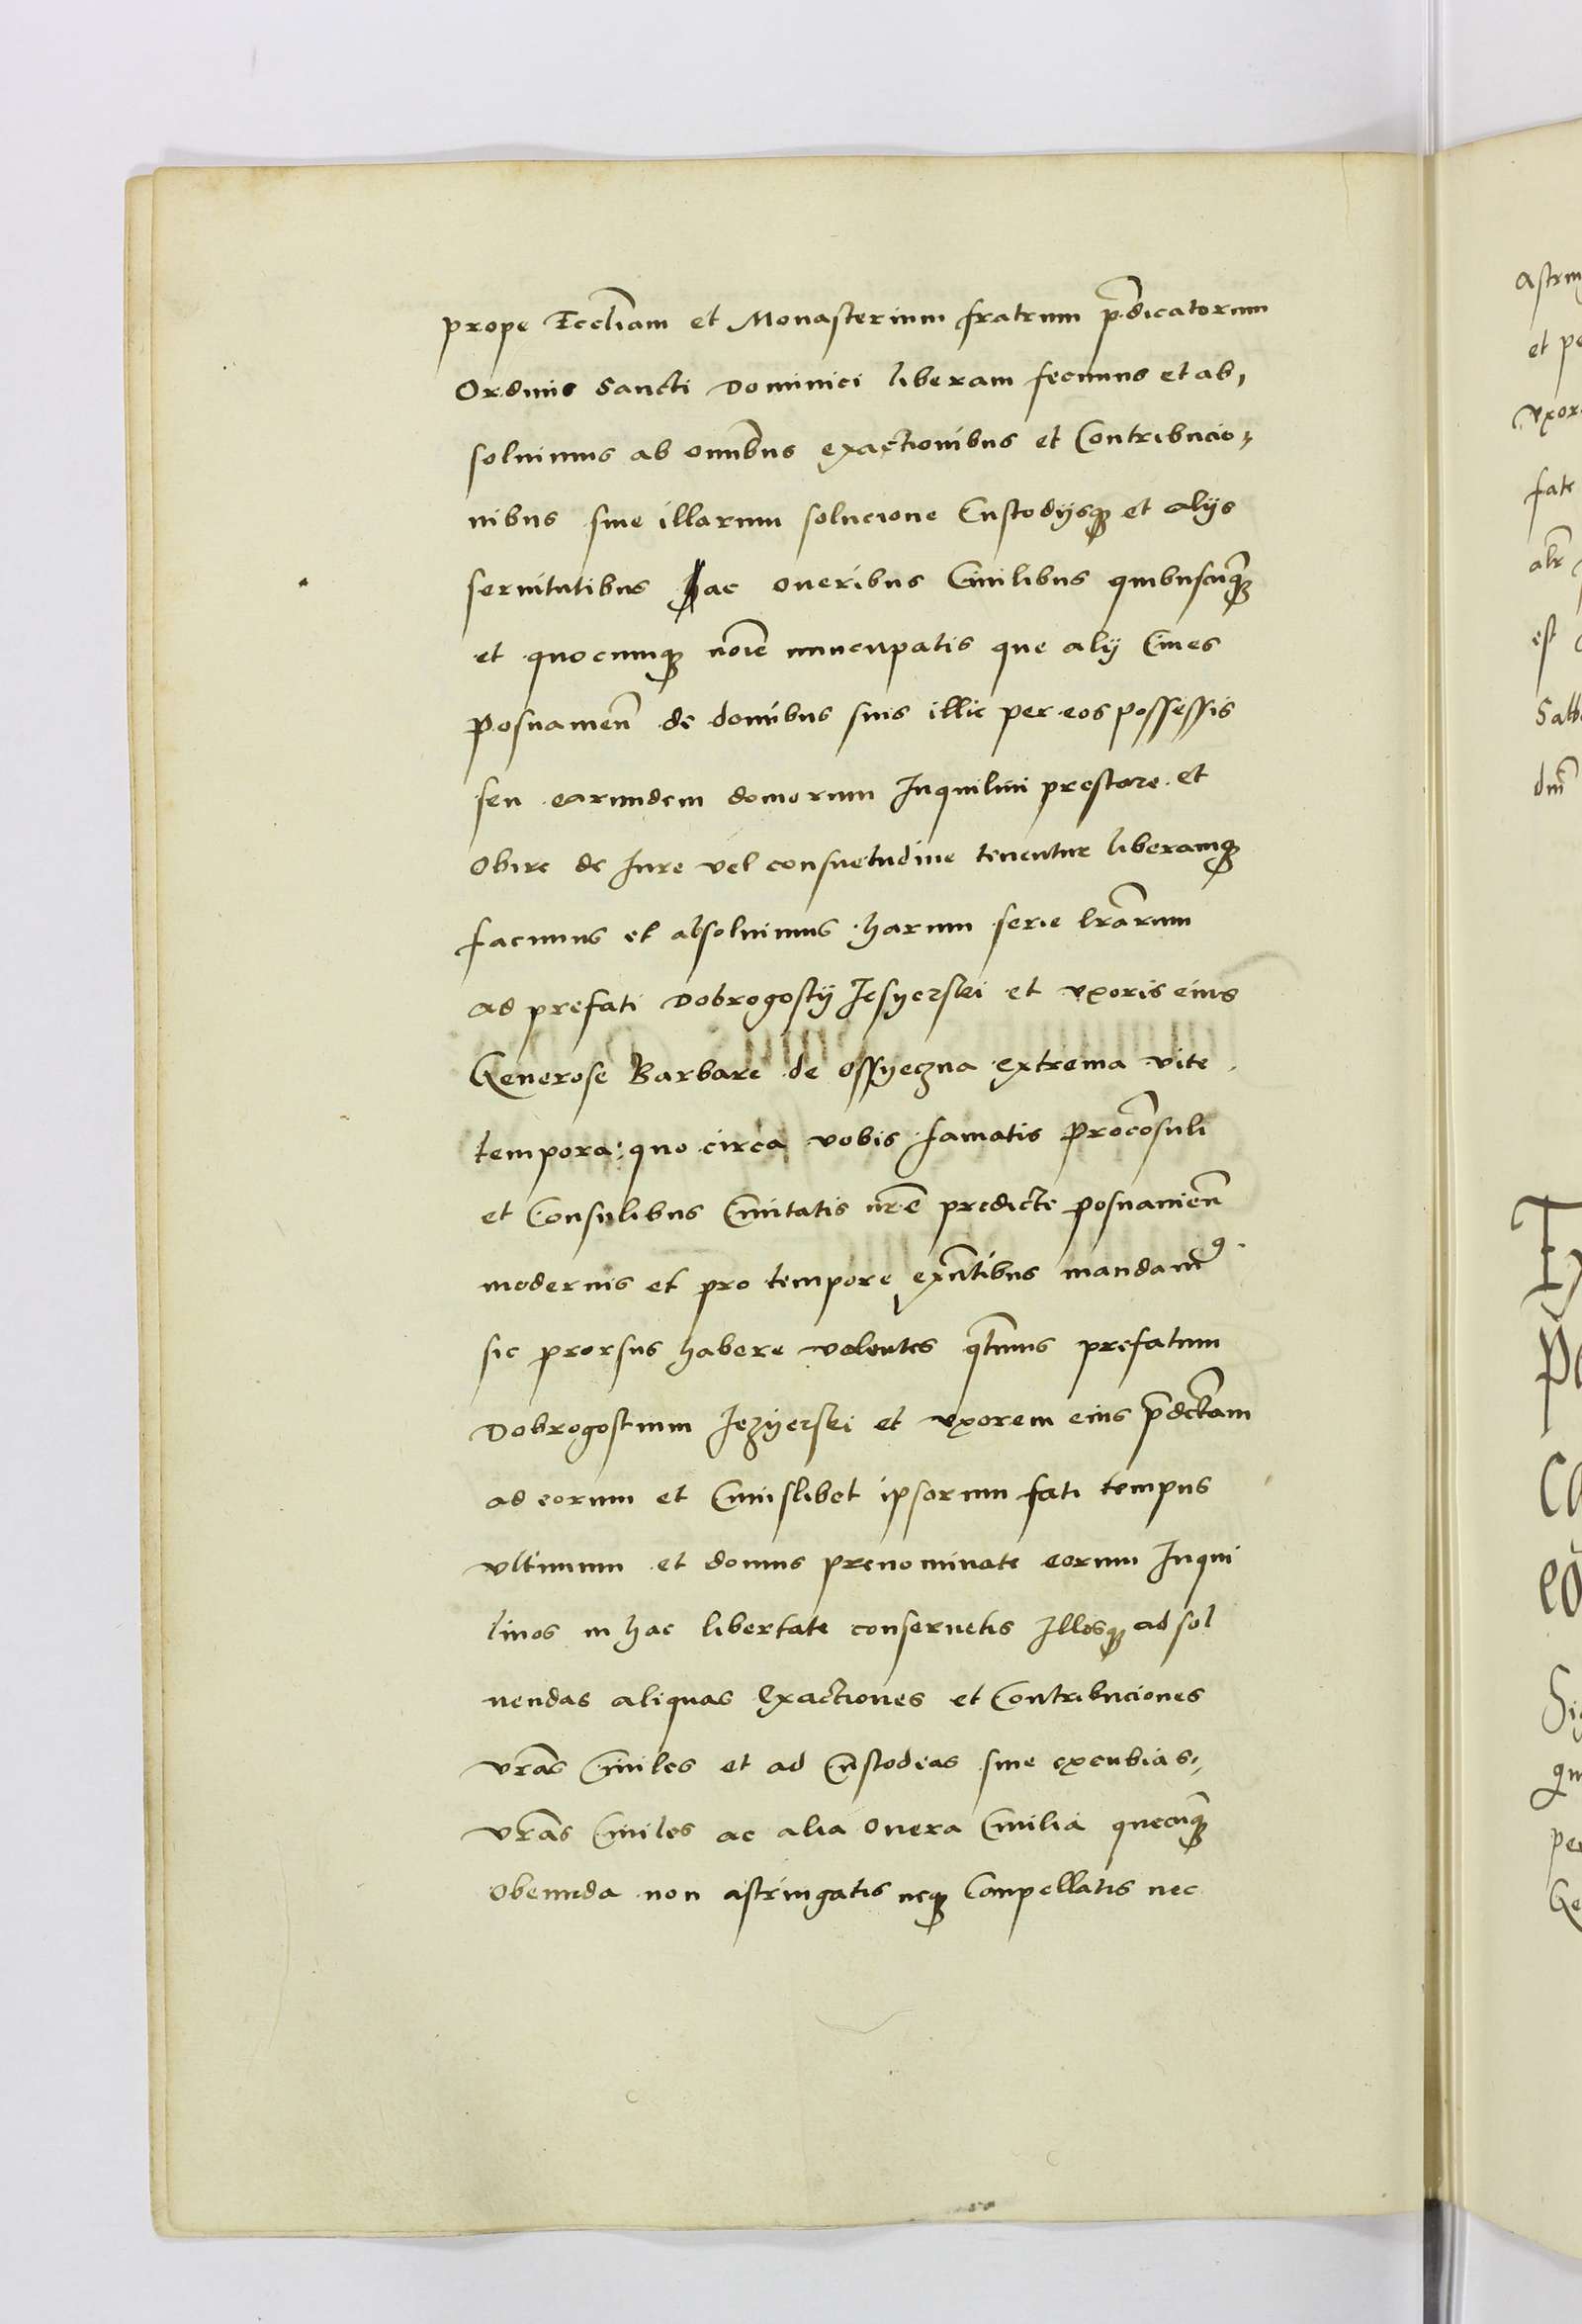 prope Eccl̄iam et Monasterium fratrum p̄dicatorum
Ordinis Sancti Dominici liberam fecimus et ab,
soluimus ab omībus exactionibus et Contribucio,
nibus siue illarum solucione Custodijsq; et alijs
seruitutibus ac oneribus Ciuilibus quibuscūq;
et quocumq; noīe nuncupatis que alij Ciues
Posnamen̄ de domibus suis illic per eos possessis
seu earundem domorum Inquilini prestare et
Obire de Iure vel consuetudine tenentur liberamq;
facimus et absoluimus harum serie lr̄arum
ad prefati Dobrogostij Jesyerski et vxoris eius
Generose Barbare de Ossyeczna extrema vite
tempora: quo circa vobis famatis Procōsuli
et Consulibus Ciuitatis nr̄e predicte Posnanien̄
modernis et pro tempore exn̄tibus mandam⁹.
sic prorsus habere volentes q̄tinus prefatum
Dobrogostium Jezyerski et vxorem eius p̄dictam
ad eorum et Cuiuslibet ipsorum fati tempus
vltimum et domus prenominate eorum Inqui
linos in hac libertate conseruetis Illosq; ad sol
uendas aliquas Exactiones et Contribuciones
vr̄as Ciuiles et ad Custodias siue excubias,
vr̄as Ciuiles ac alia Onera Ciuilia quecūq;
Obeunda non astringatis neq; Compellatis nec
astrin
et pe
vxor
fate
est
Satb
dn̄i
Ex